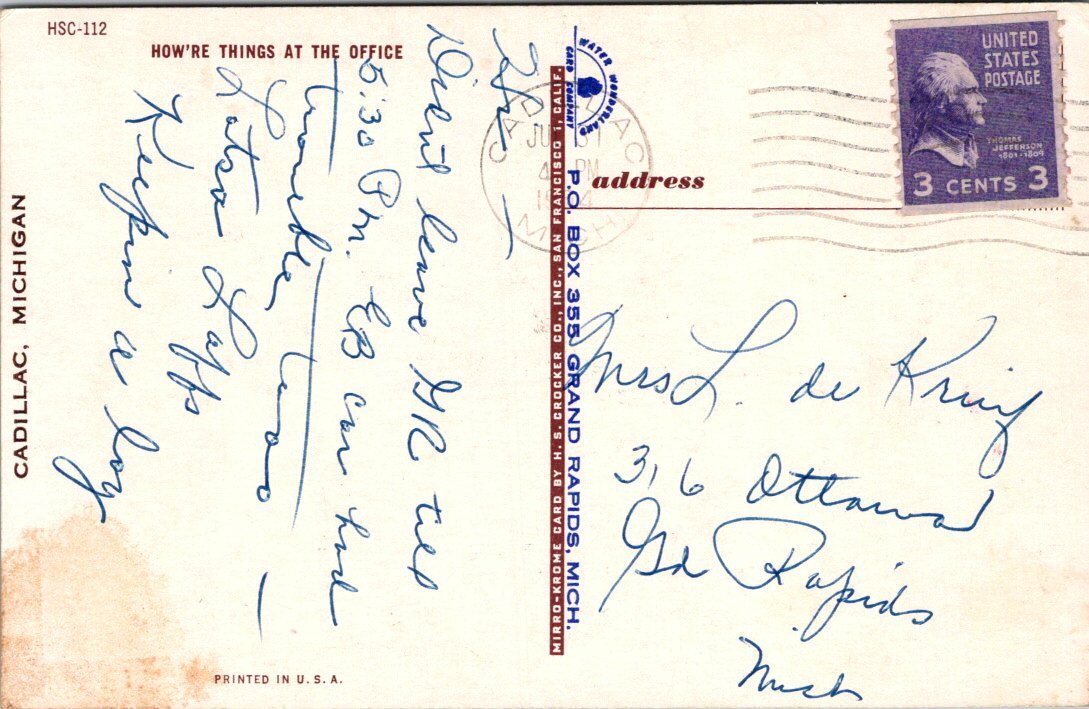 HSC-112
HOW'RE THINGS AT THE OFFICE
CADILLAC, MICHIGAN
Hi —
Didn't leave GR till
5:30 Pm. EB car had
trouble, too —
Lotsa Laffs
Keepin a log
PRINTED IN U. S. A.
MIRRO-KROME CARD BY H. S. CROCKER CO., INC., SAN FRANCISCO 1, CALIF.
WATER WONDERLAND
CARD COMPANY
P.O. BOX 355 GRAND RAPIDS, MICH.
CADILLAC
PM
MICH
address
UNITED
STATES
POSTAGE
THOMAS
JEFFERSON
1801-1809
3 CENTS 3
Mrs L. de Kruif
316 Ottawa
Gd Rapids
Mich